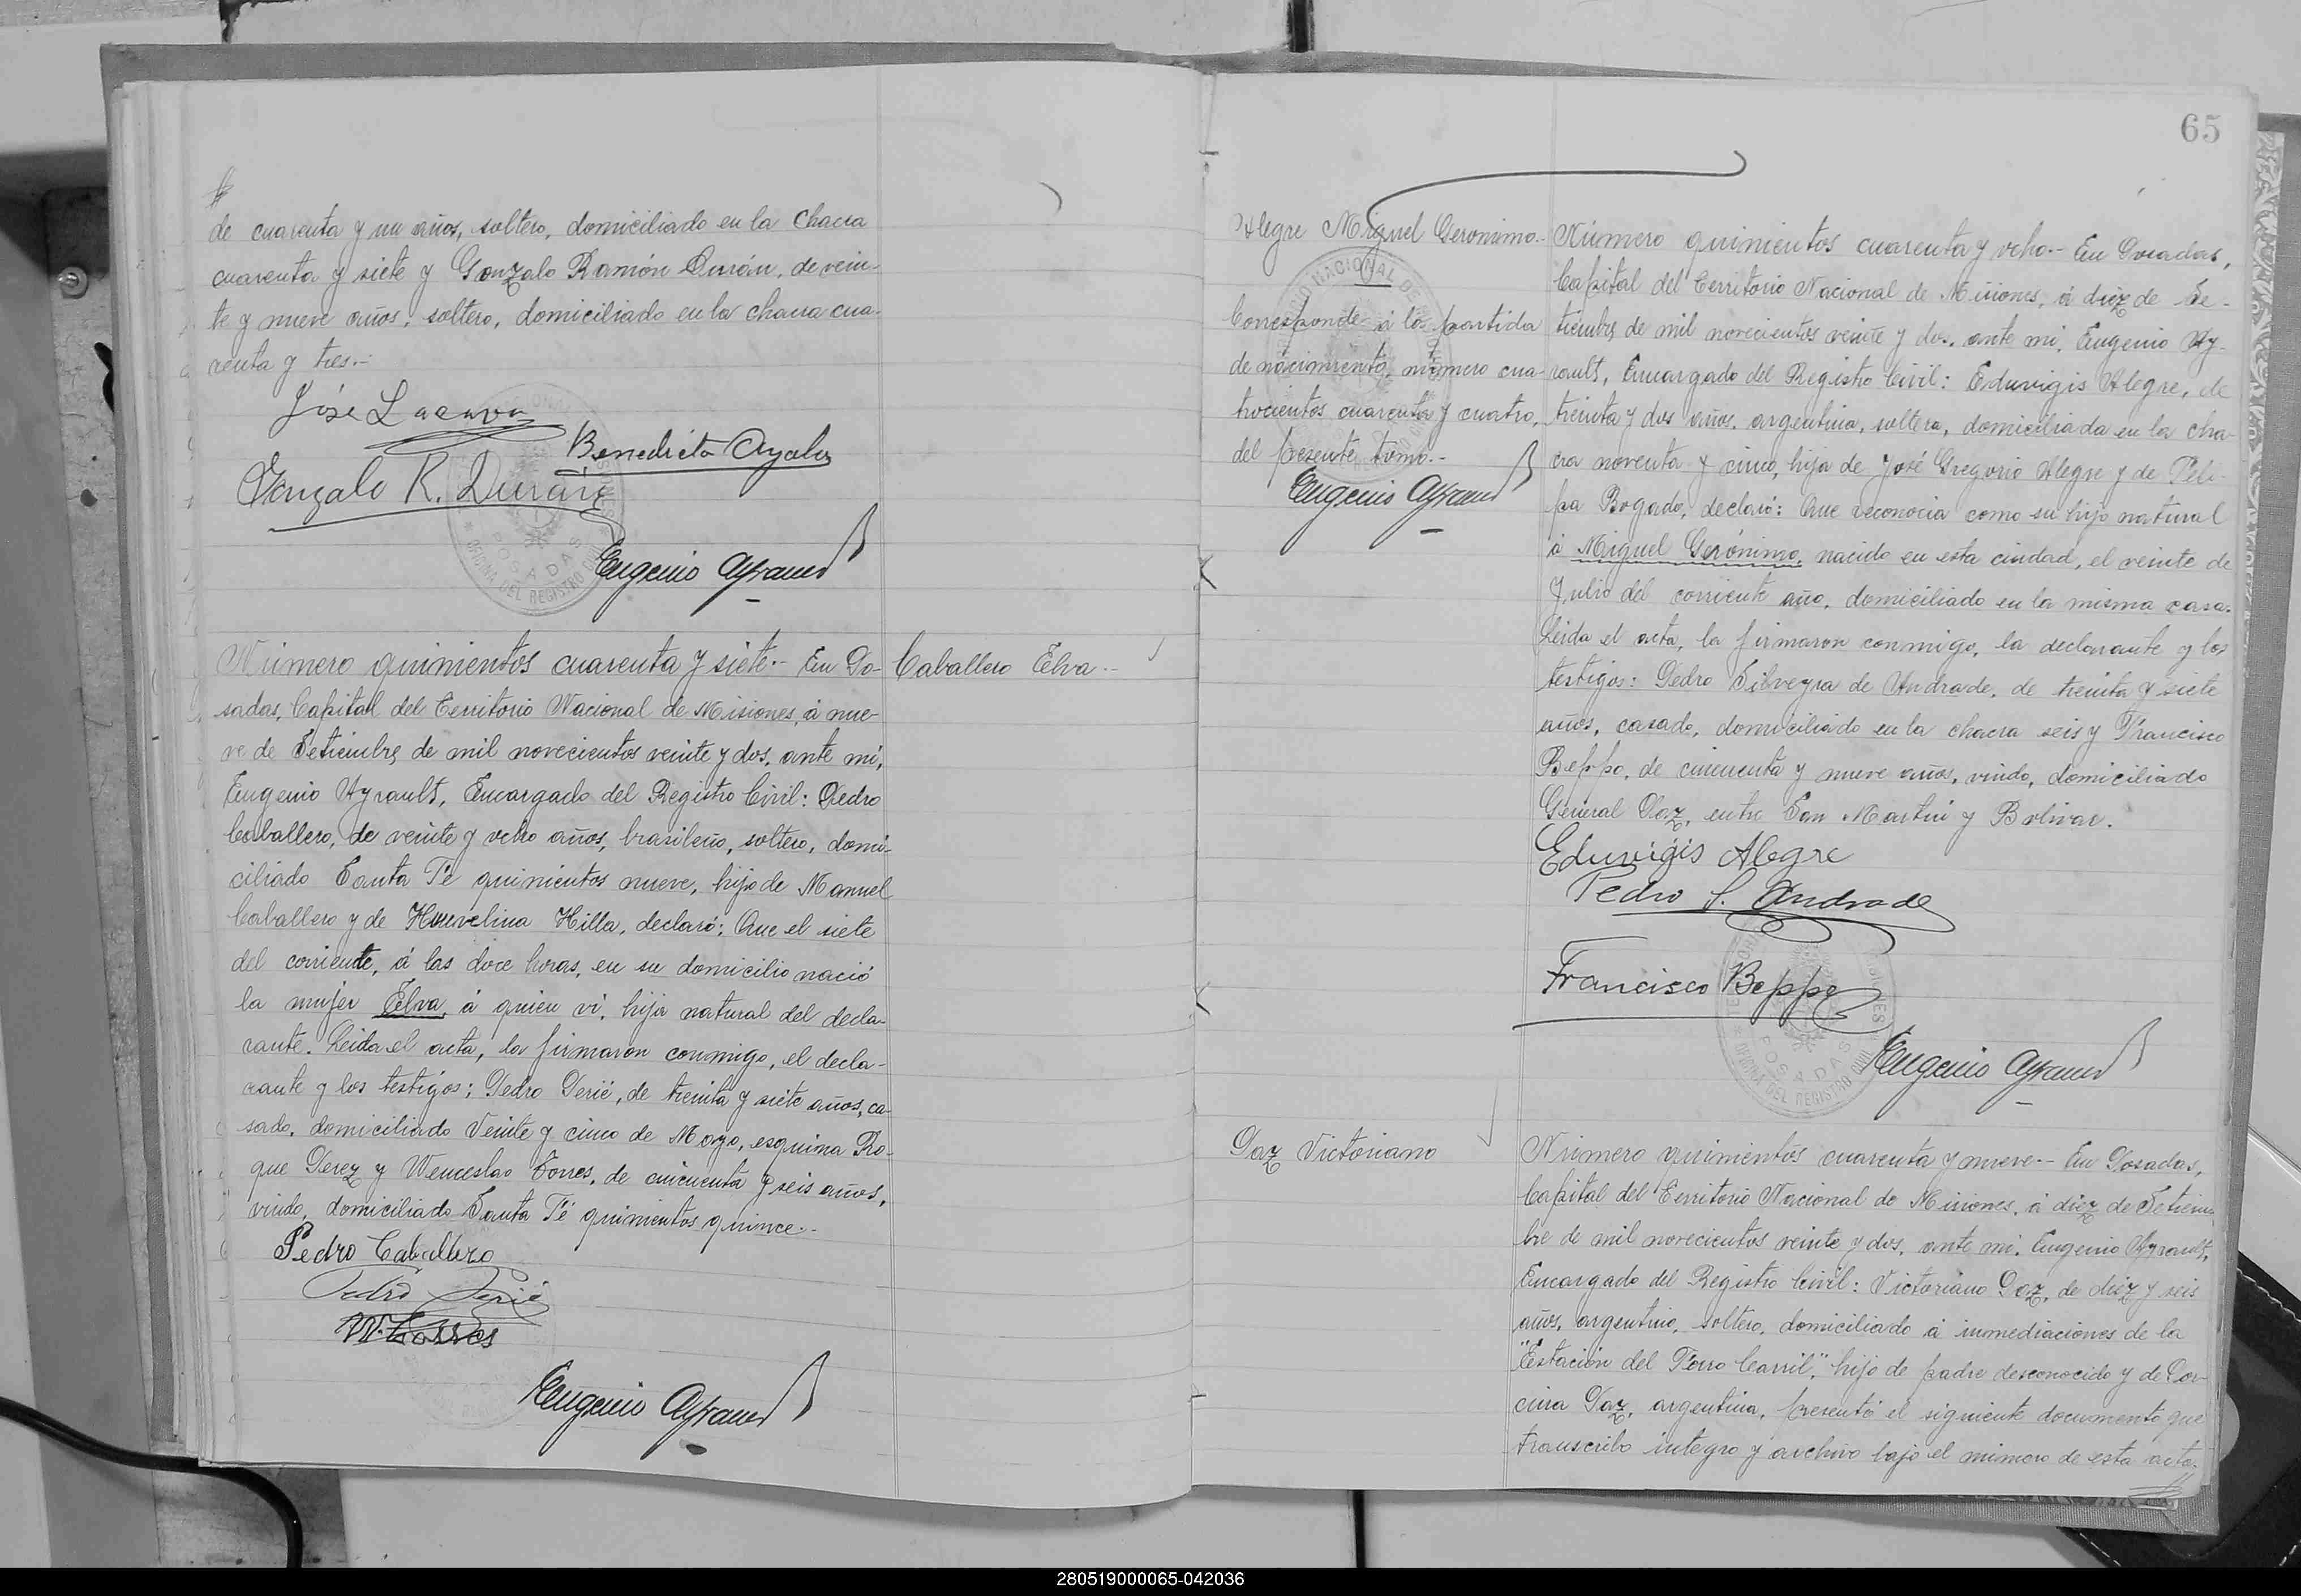 de cuarenta y un años, soltero, domiciliado en la chacra
cuarenta y siete y Gonzalo Ramón Durán, de vein-
te y nueve años, soltero, domiciliado en la chacra cua-
renta y tres.-
José Lacava
Benedicto Ayala
Gonzalo R. Durán
Eugenio Ayrault
Número quinientos cuarenta y siete.- En Po-
sadas, Capital del Territorio Nacional de Misiones, á nue-
ve de Setiembre de mil novecientos veinte y dos, ante mí,
Eugenio Ayrault, Encargado del Registro Civil: Pedro
Caballero, de veinte y ocho años, brasileño, soltero, domi-
ciliado Santa Fé quinientos nueve, hijo de Manuel
Caballero y de Hilla, declaró: Que el siete
del corriente, á las doce horas, en su domicilio nació
la mujer Elva, á quien ví, hija natural del decla-
rante. Leida el acta, la firmaron conmigo, el decla-
rante y los testigos: Pedro Perié, de treinta y siete años, ca-
sado, domiciliado Veinte y cinco de Mayo, esquina Ro-
que Perez y Wenceslao Torres, de cincuenta y seis años,
viudo, domiciliado Santa Fé quinientos quince.-
Pedro Caballero
Pedro Perié
W. Torres
Eugenio Ayrault
Caballero Elva.-
65
Alegre Miguel Geronimo.-
Corresponde á la partida
de nacimiento, número cua-
trocientos cuarenta y cuatro,
del presente tomo.-
Eugenio Ayrault
Número quinientos cuarenta y ocho.- En Posadas,
Capital del Territorio Nacional de Misiones, á diez de Se-
tiembre de mil novecientos veinte y dos, ante mí, Eugenio Ay-
rault, Encargado del Registro Civil: Eduvigis Alegre, de
treinta y dos años, argentina, soltera, domiciliada en la cha-
cra noventa y cinco, hija de José Gregorio Alegre y de Feli-
pa Bogado, declaró: Que reconocia como su hijo natural
á Miguel Gerónimo, nacido en esta ciudad, el veinte de
Julio del corriente año, domiciliado en la misma casa.
Leida el acta, la firmaron conmigo, la declarante y los
testigos: Pedro Silveyra de Andrade, de treinta y siete
años, casado, domiciliado en la chacra seis y Francisco
Beppo, de cincuenta y nueve años, viudo, domiciliado
General Paz, entre San Martin y Bolivar.
Eduvigis Alegre
Pedro S. Andrade
Francisco Beppo
Eugenio Ayrault
Paz Victoriano
Número quinientos cuarenta y nueve.- En Posadas,
Capital del Territorio Nacional de Misiones, á diez de Setiem-
bre de mil novecientos veinte y dos, ante mí, Eugenio Ayrault,
Encargado del Registro Civil: Victoriano Paz, de diez y seis
años, argentino, soltero, domiciliado á inmediaciones de la
"Estación del Ferro Carril," hijo de padre desconocido y de Cor-
cina Paz, argentina, presentó el siguiente documento que
transcribo integro y archivo bajo el número de esta acta.
280519000065-042036